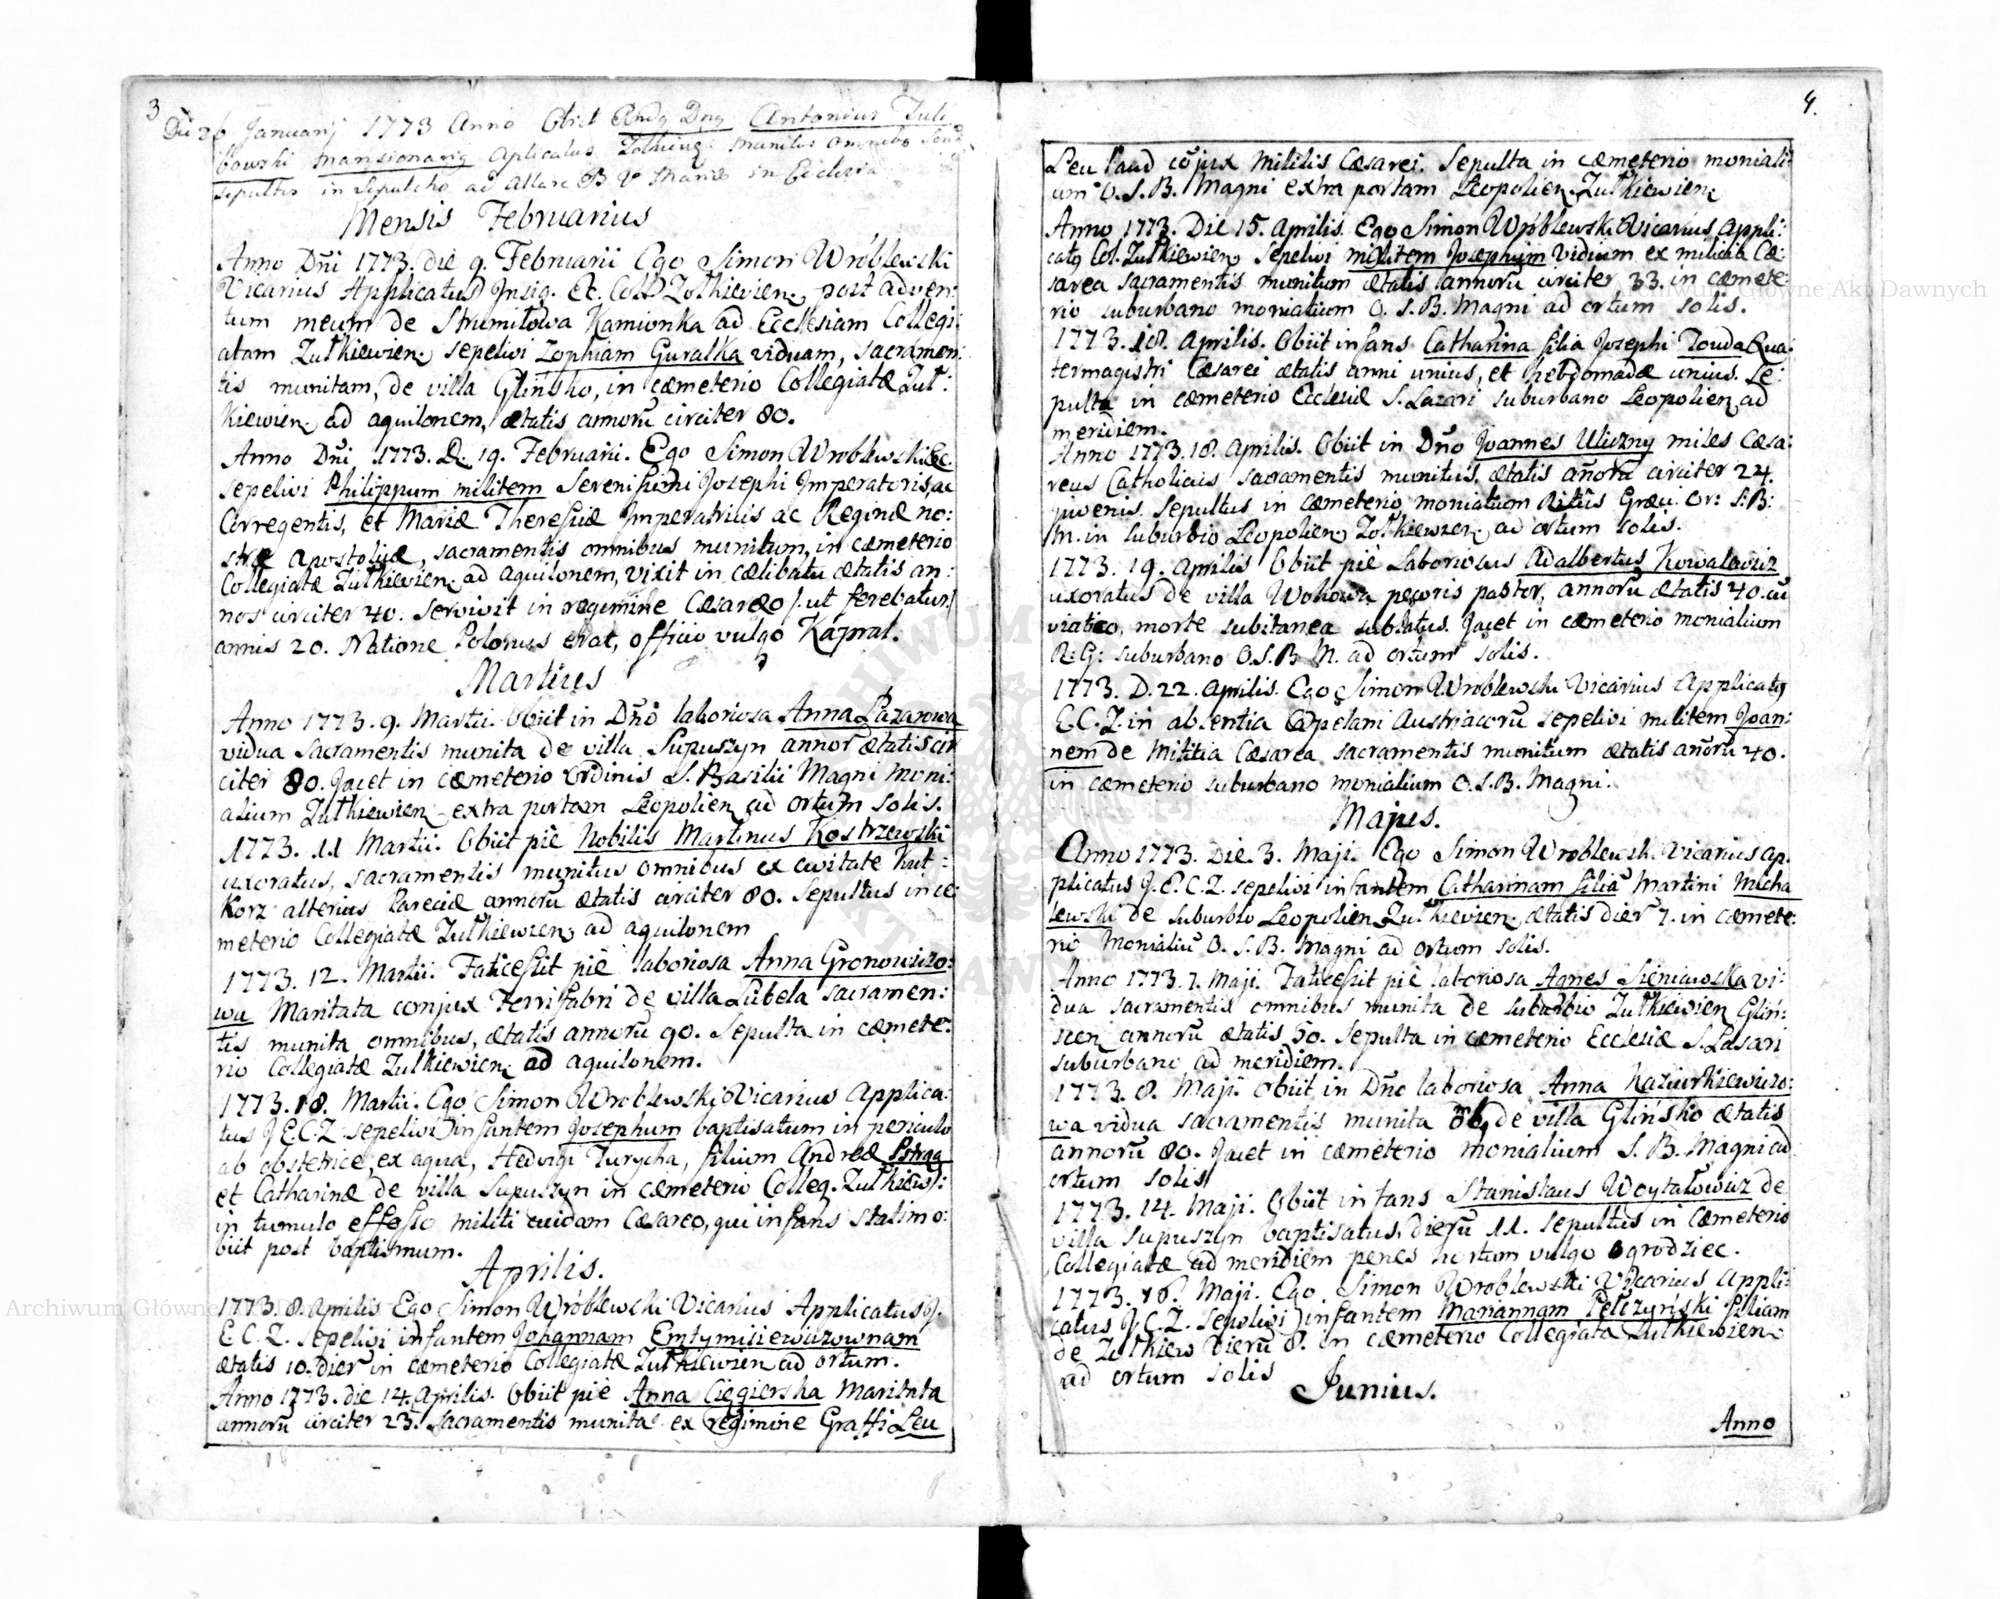 3
Die 26 Januarij 1773 Anno Obiit Andy Dny Antonius Tuli
bowski mansionariq Aplicatus Zolkieng: munitus omnibus
sepultus in Sepulcho ad Altare B V Mariæ in Ecclesia
Mensis Februarius
Anno Dñi 1773. die 9. Februarii Ego Simon Wróblewski
Vicarius Applicatus Insig. Ec. Coll. Zołkievien. post adven:
tum meum de Strumiłowa Kamionka ad Ecclesiam Collegi:
atam Zułkiewien. sepelivi Zophiam Guralka viduam, sacramen:
tis munitam, de villa Glińsko, in cæmeterio Collegiatæ Zuł:
kiewien. ad aquilonem, ætatis annorũ circiter 80.
Anno Dñi 1773. D. 19. Februarii. Ego Simon Wroblewski Ec.
sepelivi Philippum militem Serenissimi Josephi Imperatoris, ac
Corregentis, et Mariæ Theresiæ Imperatricis ac Reginæ no:
stræ Apostolicæ, sacramentis omnibus munitum, in cæmeterio
Collegiatæ Zułkievien. ad aquilonem, vixit in cælibatu ætatis an:
nos circiter 40. Servivit in regimine Cæsareo /:ut ferebatur:/
annis 20. Natione Polonus erat, officio vulgo Kapral.
Martius
Anno 1773. 9. Martii. Obiit in Dño laboriosa Anna Łazarowa
vidua Sacramentis munita de villa Supuszyn annor ætatis cir
citer 80. Jacet in cæmeterio Ordinis S. Basilii Magni Moni:
alium Zułkiewien. extra portam Leopolien. ad ortum solis.
1773. 11 Martii. Obiit pie Nobilis Martinus Kostrzewski
uxoratus, sacramentis munitus omnibus ex civitate Kul:
Korz alterius Pareciæ annorũ ætatis circiter 80. Sepultus in cæ
meterio Collegiatæ Zułkiewien. ad aquilonem
1773. 12. Martii. Fatiscessit piè laboriosa Anna Gronowiczo:
wa Maritata conjux Ferrifabri de villa Lubela sacramen:
tis munita omnibus, ætatis annorũ 90. Sepulta in cæmete:
rio Collegiatæ Zułkiewien. ad aquilonem.
1773. 18. Martii. Ego Simon Wroblewski Vicarius Applica:
tus J E. C. Z sepelivi infantem Josephum baptisatum in periculo
ab obstetrice, ex aqua, Hedvigi Turycha, filium Andreæ Pstrąg
et Catharinæ de villa Supuszyn in cæmeterio Colleg. Zułkiew:
in tumulo effosso militi cuidam Cæsareo, qui infans statim o:
biit post baptismum.
Aprilis.
1773. 8. Aprilis Ego Simon Wróblewski Vicarius Applicatus J.
E. C. Z. sepelivi infantem Johannam Emtymisiewiczownam
ætatis 10. dier in cæmeterio Collegiatæ Zułkiewien ad ortum.
Anno 1773. die 14. Aprilis. Obiit pie Anna Cięgierska Maritata
annorũ circiter 23. sacramentis munita ex regimine Graffi Leu
4.
Leu Paud cõjux Militis Cæsarei. Sepulta in cæmeterio moniali:
um O. S. B. Magni extra portam Leopolien. Zułkiewien.
Anno 1773. Die 15. Aprilis. Ego Simon Wróblewski Vicarius Appli:
catq Col. Zułkiewien. sepelivi militem Josephum Vidium ex militia Cæ:
sarea sacramentis munitum ætatis annorũ circiter 33. in cæmete:
rio suburbano monialium O. S. B. Magni ad ortum solis.
1773. 18. Aprilis. Obiit infans Catharina filia Josephi Touda Qua:
termagistri Cæsarei ætatis anni unius, et hebdomadæ unius. Se:
pulta in cæmeterio Ecclesiæ S. Lazari suburbano Leopolien. ad
meridiem.
Anno 1773. 18. Aprilis. Obiit in Dño Joannes Uliczny miles Cæsa:
reus Catholicis sacramentis munitus, ætatis añorũ circiter 24.
juvenis. Sepultus in cæmeterio monialium Ritus Græci Or: S: B:
M. in suburbio Leopolien. Zołkiewien. ad ortum solis.
1773. 19. Aprilis Obiit piè Laboriosus Adalbertus Kowalewicz
uxoratus de villa Woliowa pecoris pastor, annorũ ætatis 40. cũ
viatico, morte subitanea sublatus. Jacet in cæmeterio monialium
R: G: suburbano O. S. B M. ad ortum solis.
1773. D. 22. Aprilis. Ego Simon Wroblewski Vicarius Applicatq
E. C. Z. in absentia Capelani Austriacorũ sepelivi militem Joan:
nem de Militia Cæsarea sacramentis munitum ætatis añorũ 40.
in cæmeterio suburbano monialium O. S. B. Magni.
Majus.
Anno 1773. Die. 3. Maji. Ego Simon Wroblewski Vicarius ap.
plicatus J. E. C. Z. sepelivi infantem Catharinam filiã Martini Micha
lewski de suburbio Leopolien. Zułkievien. ætatis dier 7. in cæmete:
rio Monialiũ O. S. B. Magni ad ortum solis.
Anno 1773. 7. Maji. Fatiscessit piè laboriosa Agnes Sieniawska vi:
dua sacramentis omnibus munita de suburbio Zułkiewien Gliń:
scen annorũ ætatis 50. Sepulta in cæmeterio Ecclesiæ S. Lasari
suburbano ad meridiem.
1773. 8. Maji. Obiit in Dño laboriosa Anna Kaziurkiewiczo:
wa vidua sacramentis munita de villa Glińsko ætatis
annorũ 80. Jacet in cæmeterio monialium S. B. Magni ad
ortum solis
1773. 14. Maji. Obiit infans Stanislaus Woytałowicz de
villa Supuszyn baptisatus, dierũ 11. sepultus in cæmeterio
Collegiatæ ad meridiem penes hortum vulgo ogrodziec.
1773. 18. Maji. Ego Simon Wroblewski Vicarius Appli:
catus J. C. Z. Sepelivi infantem Mariannam Pełczyński filiam
de Zułkiew dierũ 8. in cæmeterio Collegiatæ Zułkiewien.
ad ortum solis
Junius.
Anno
Archiwum Główne Akt Dawnych